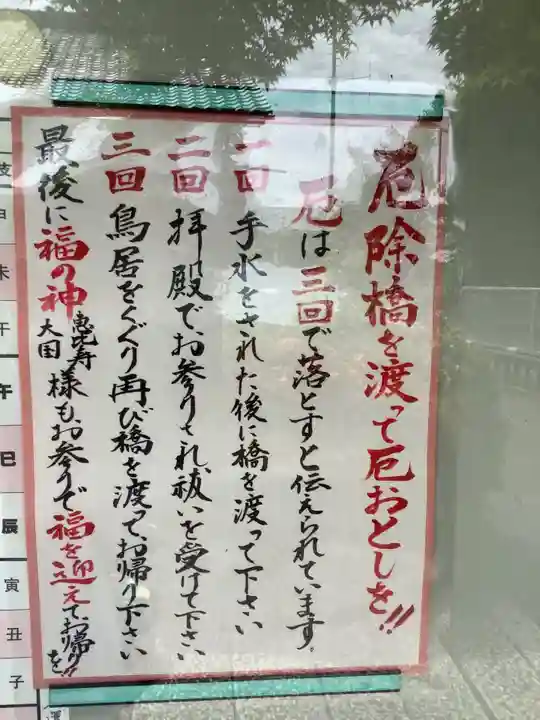 厄除橋を渡って厄おとしを!!
厄は三回で落とすと伝えられています。
一回 手水をされた後に橋を渡って下さい
二回 拝殿でお参りされ、祓いを受けて下さい
三回 鳥居をくぐり再び橋を渡って、お帰り下さい
最後に福の神 恵比寿 大国 様もお参りで福を迎えて、お帰りを!!
未
午
午
巳
辰
寅
丑
子